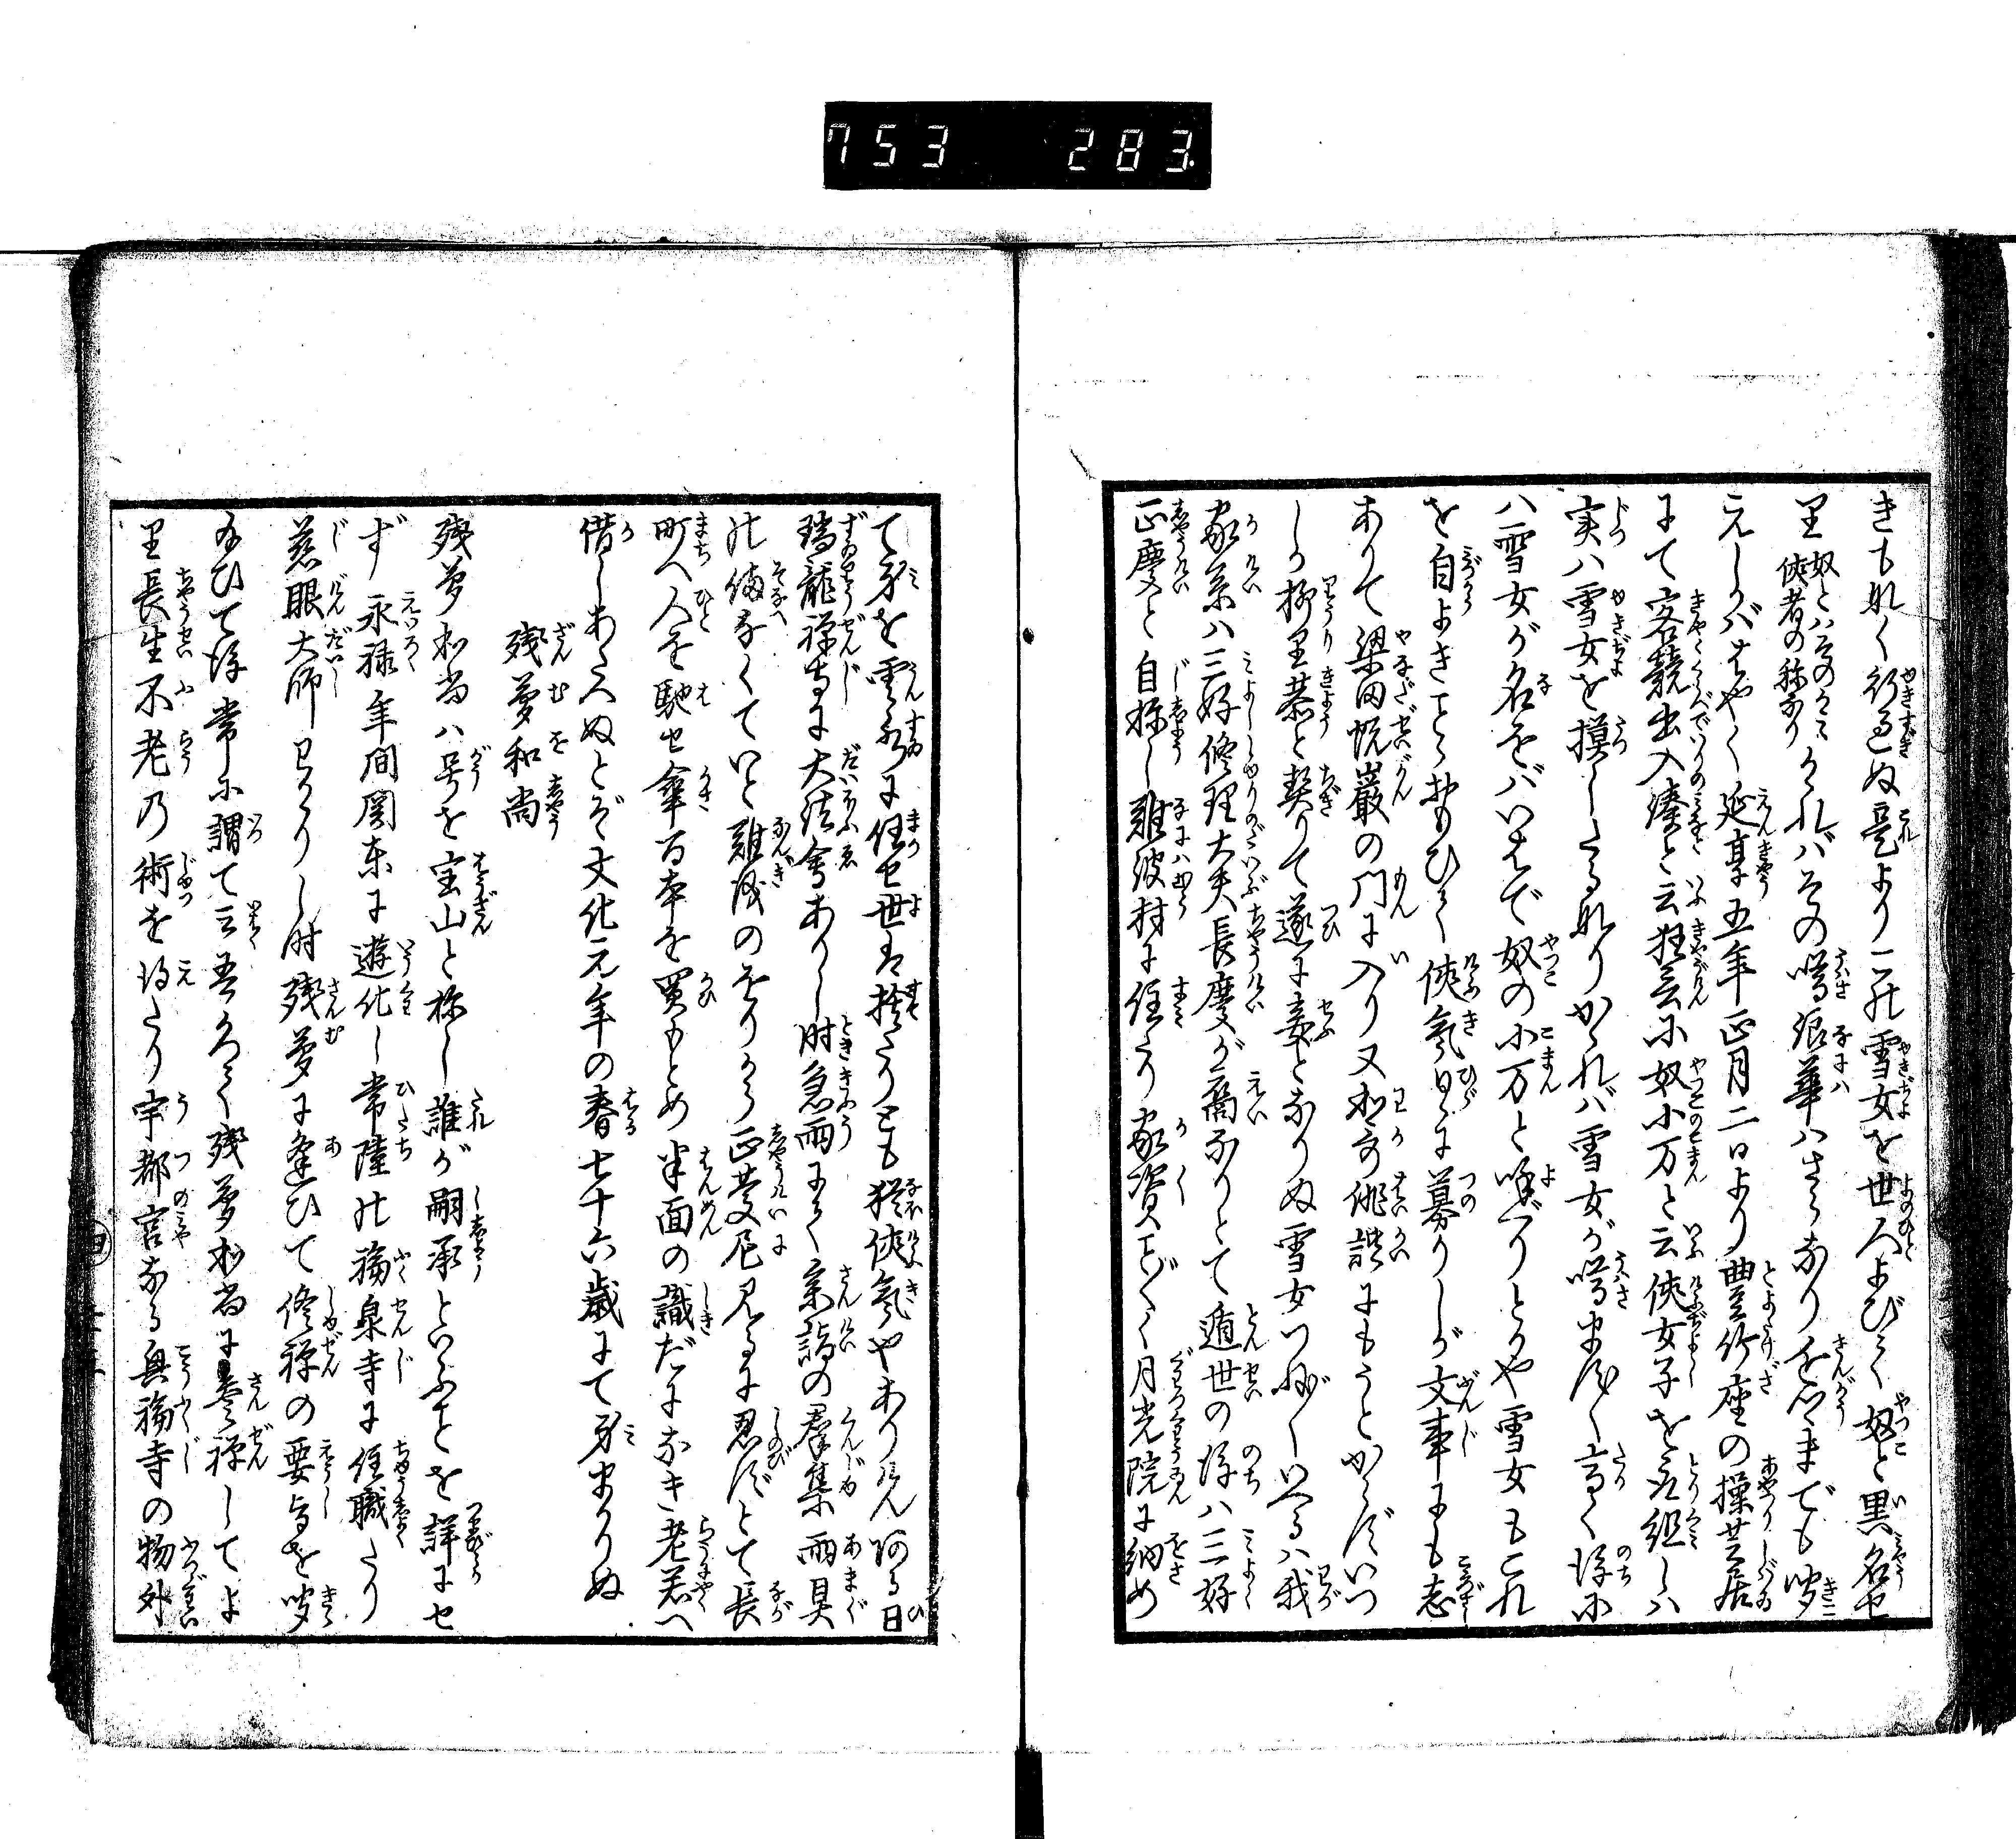 753 283.
きもなく行過ぬ是より二に雪女を世人よびて奴と異名せ
り奴とハそのかミ侠者の称なりされバその噂浪華ハさらなり参河までも聞
こえしかバはやく延享五年正月二日より豊竹座の操芝居
にて容競出入湊と云狂言に奴小万と云侠女子を取組しハ
実ハ雪女を摸したるなりかゝれバ雪女が噂ます〳〵高く後に
ハ雪女が名をバいはで奴の小万と喚べりとかや雪女もこれ
を自よきことおもひて侠気日々に募りしが文事にも志
ありて梁田蛻巌の門に入り又和哥俳諧にもうとからずいつ
しか柳里恭と契りて遂に妾となりぬ雪女つねにいへるハ我
家系ハ三好修理大夫長慶が裔なりとて遁世の後ハ三好
正慶と自称し難波村に住たり家資こと〴〵く月光院に納め
て身を雲水に任せ世は捨たりとも猶侠気やありけん或る日
瑞龍禅寺に大法会ありし時急雨にて参詣の群集雨具
の備なくていと難儀のをりから正慶尼見るに忍ずとて長
町へ人を馳せ傘百本を買もとめ半面の識だになき老若へ
借しあたへぬとぞ文化元年の春七十六歳にて身まかりぬ
残夢和尚
残夢和尚ハ号を宝山と称し誰が嗣承といふことを詳にせ
ず永禄年間関東に遊化し常陸の福泉寺に住職たり
慈眼大師わかかりし時残夢に逢ひて修禅の要与を聞
給ひて後常に謂て云吾久しく残夢和尚に参禅してよ
り長生不老の術を得たり宇都宮なる興福寺の物外